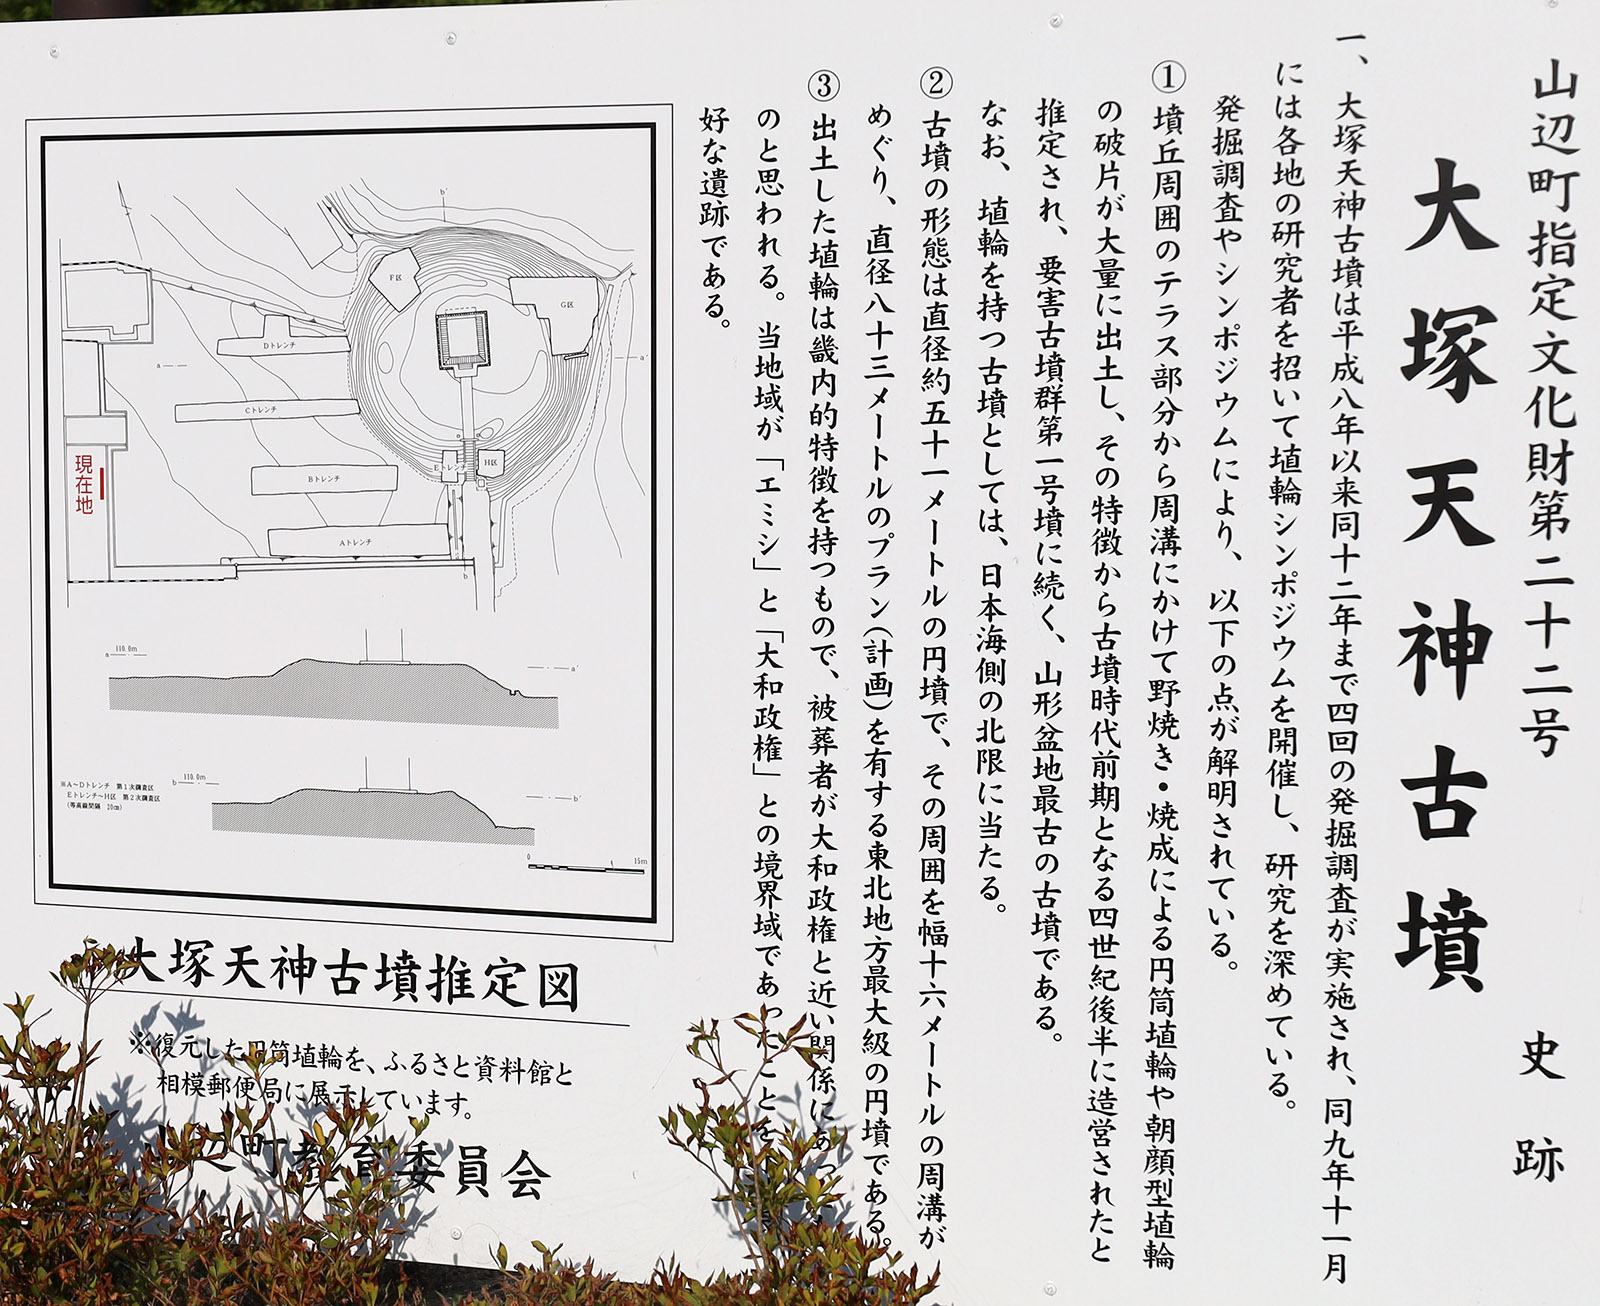 山辺町指定文化財第二十二号
史跡
大塚天神古墳
一、大塚天神古墳は平成八年以来同十二年まで四回の発掘調査が実施され、同九年十一月
には各地の研究者を招いて埴輪シンポジウムを開催し、研究を深めている。
発掘調査やシンポジウムにより、以下の点が解明されている。
①墳丘周囲のテラス部分から周溝にかけて野焼き・焼成による円筒埴輪や朝顔型埴輪
の破片が大量に出土し、その特徴から古墳時代前期となる四世紀後半に造営されたと
推定され、要害古墳群第一号墳に続く、山形盆地最古の古墳である。
なお、埴輪を持つ古墳としては、日本海側の北限に当たる。
②古墳の形態は直径約五十一メートルの円墳で、その周囲を幅十六メートルの周溝が
めぐり、直径八十三メートルのプラン(計画)を有する東北地方最大級の円墳である。
③出土した埴輪は畿内的特徴を持つもので、被葬者が大和政権と近い関係にあった
のと思われる。当地域が「エミシ」と「大和政権」との境界域であったことを
好な遺跡である。
b'
F区
G区
Dトレンチ
a
a'
Cトレンチ
Eトレンチ
H区
Bトレンチ
現在地
Aトレンチ
b
110.0m
a
a'
110.0m
b
b'
※A〜Dトレンチ 第1次調査区
Eトレンチ〜H区 第2次調査区
(等高線間隔 20cm)
0
15m
大塚天神古墳推定図
※復元した円筒埴輪を、ふるさと資料館と
相模郵便局に展示しています。
山辺町教育委員会